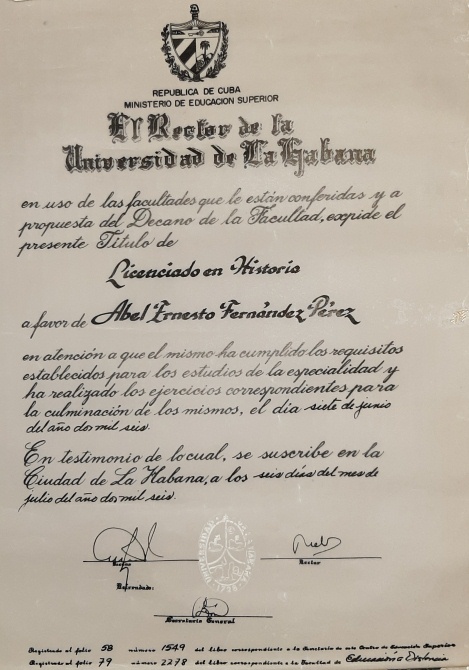 REPUBLICA DE CUBA
MINISTERIO DE EDUCACION SUPERIOR
El Rector de la
Universidad de La Habana
en uso de las facultades que le están conferidas y a
propuesta del Decano de la Facultad, expide el
presente Título de
Licenciado en Historia
a favor de Abel Ernesto Fernández Pérez
en atención a que el mismo ha cumplido los requisitos
establecidos para los estudios de la especialidad y
ha realizado los ejercicios correspondientes para
la culminación de los mismos, el día siete de junio
del año dos mil seis
En testimonio de lo cual, se suscribe en la
Ciudad de La Habana, a los seis días del mes de
julio del año dos mil seis
Rector
Refrendado:
Secretario General
UNIVERSIDAD
Registrado al folio 58 número 1549 del Libro correspondiente a la
Registrado al folio 79 número 2278 del Libro correspondiente a la